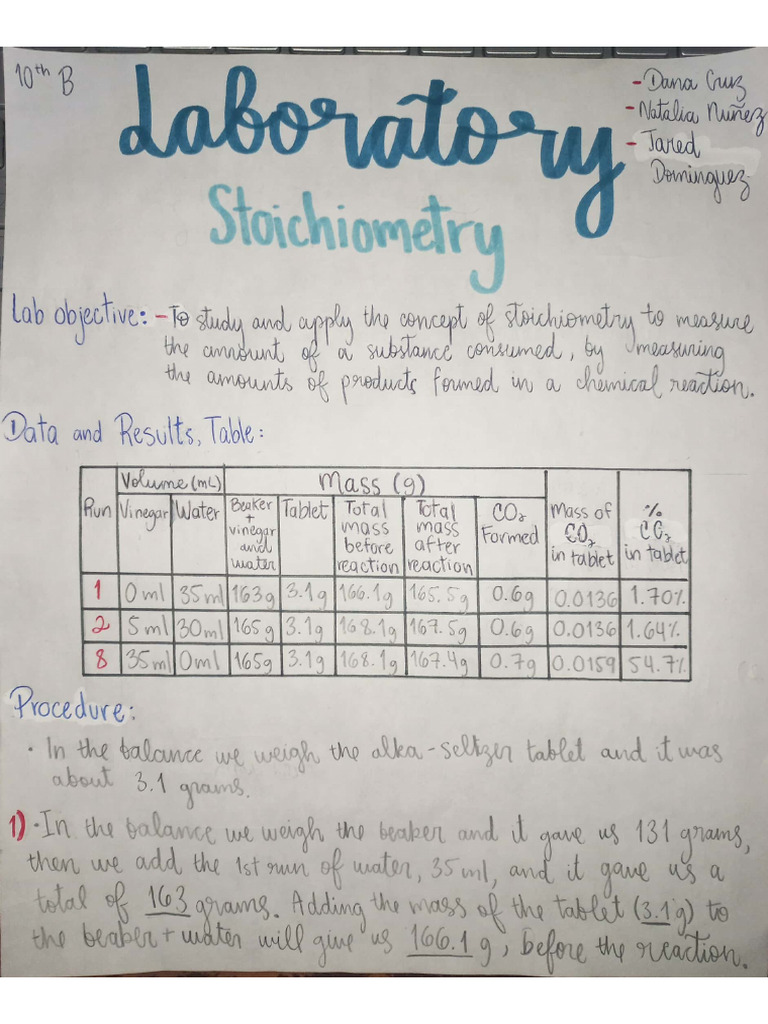 10th B
Laboratory
- Dana Cruz
- Natalia Nuñez
- Jared
Dominguez
Stoichiometry
Lab objective: - To study and apply the concept of stoichiometry to measure
the amount of a substance consumed, by measuring
the amounts of products formed in a chemical reaction.
Data and Results, Table:
Run | Volume (mL) | Mass (g) | Mass of CO2 in tablet | % CO2 in tablet
Vinegar | Water | Beaker + vinegar and water | Tablet | Total mass before reaction | Total mass after reaction | CO2 Formed
1 | 0ml | 35ml | 163g | 3.1g | 166.1g | 165.5g | 0.6g | 0.0136 | 1.70%
2 | 5ml | 30ml | 165g | 3.1g | 168.1g | 167.5g | 0.6g | 0.0136 | 1.64%
8 | 35ml | 0ml | 165g | 3.1g | 168.1g | 167.4g | 0.7g | 0.0159 | 54.7%
Procedure:
· In the balance we weigh the alka-seltzer tablet and it was
about 3.1 grams.
1) · In the balance we weigh the beaker and it gave us 131 grams,
then we add the 1st run of water, 35 ml, and it gave us a
total of 163 grams. Adding the mass of the tablet (3.1g) to
the beaker + water will give us 166.1 g, before the reaction.